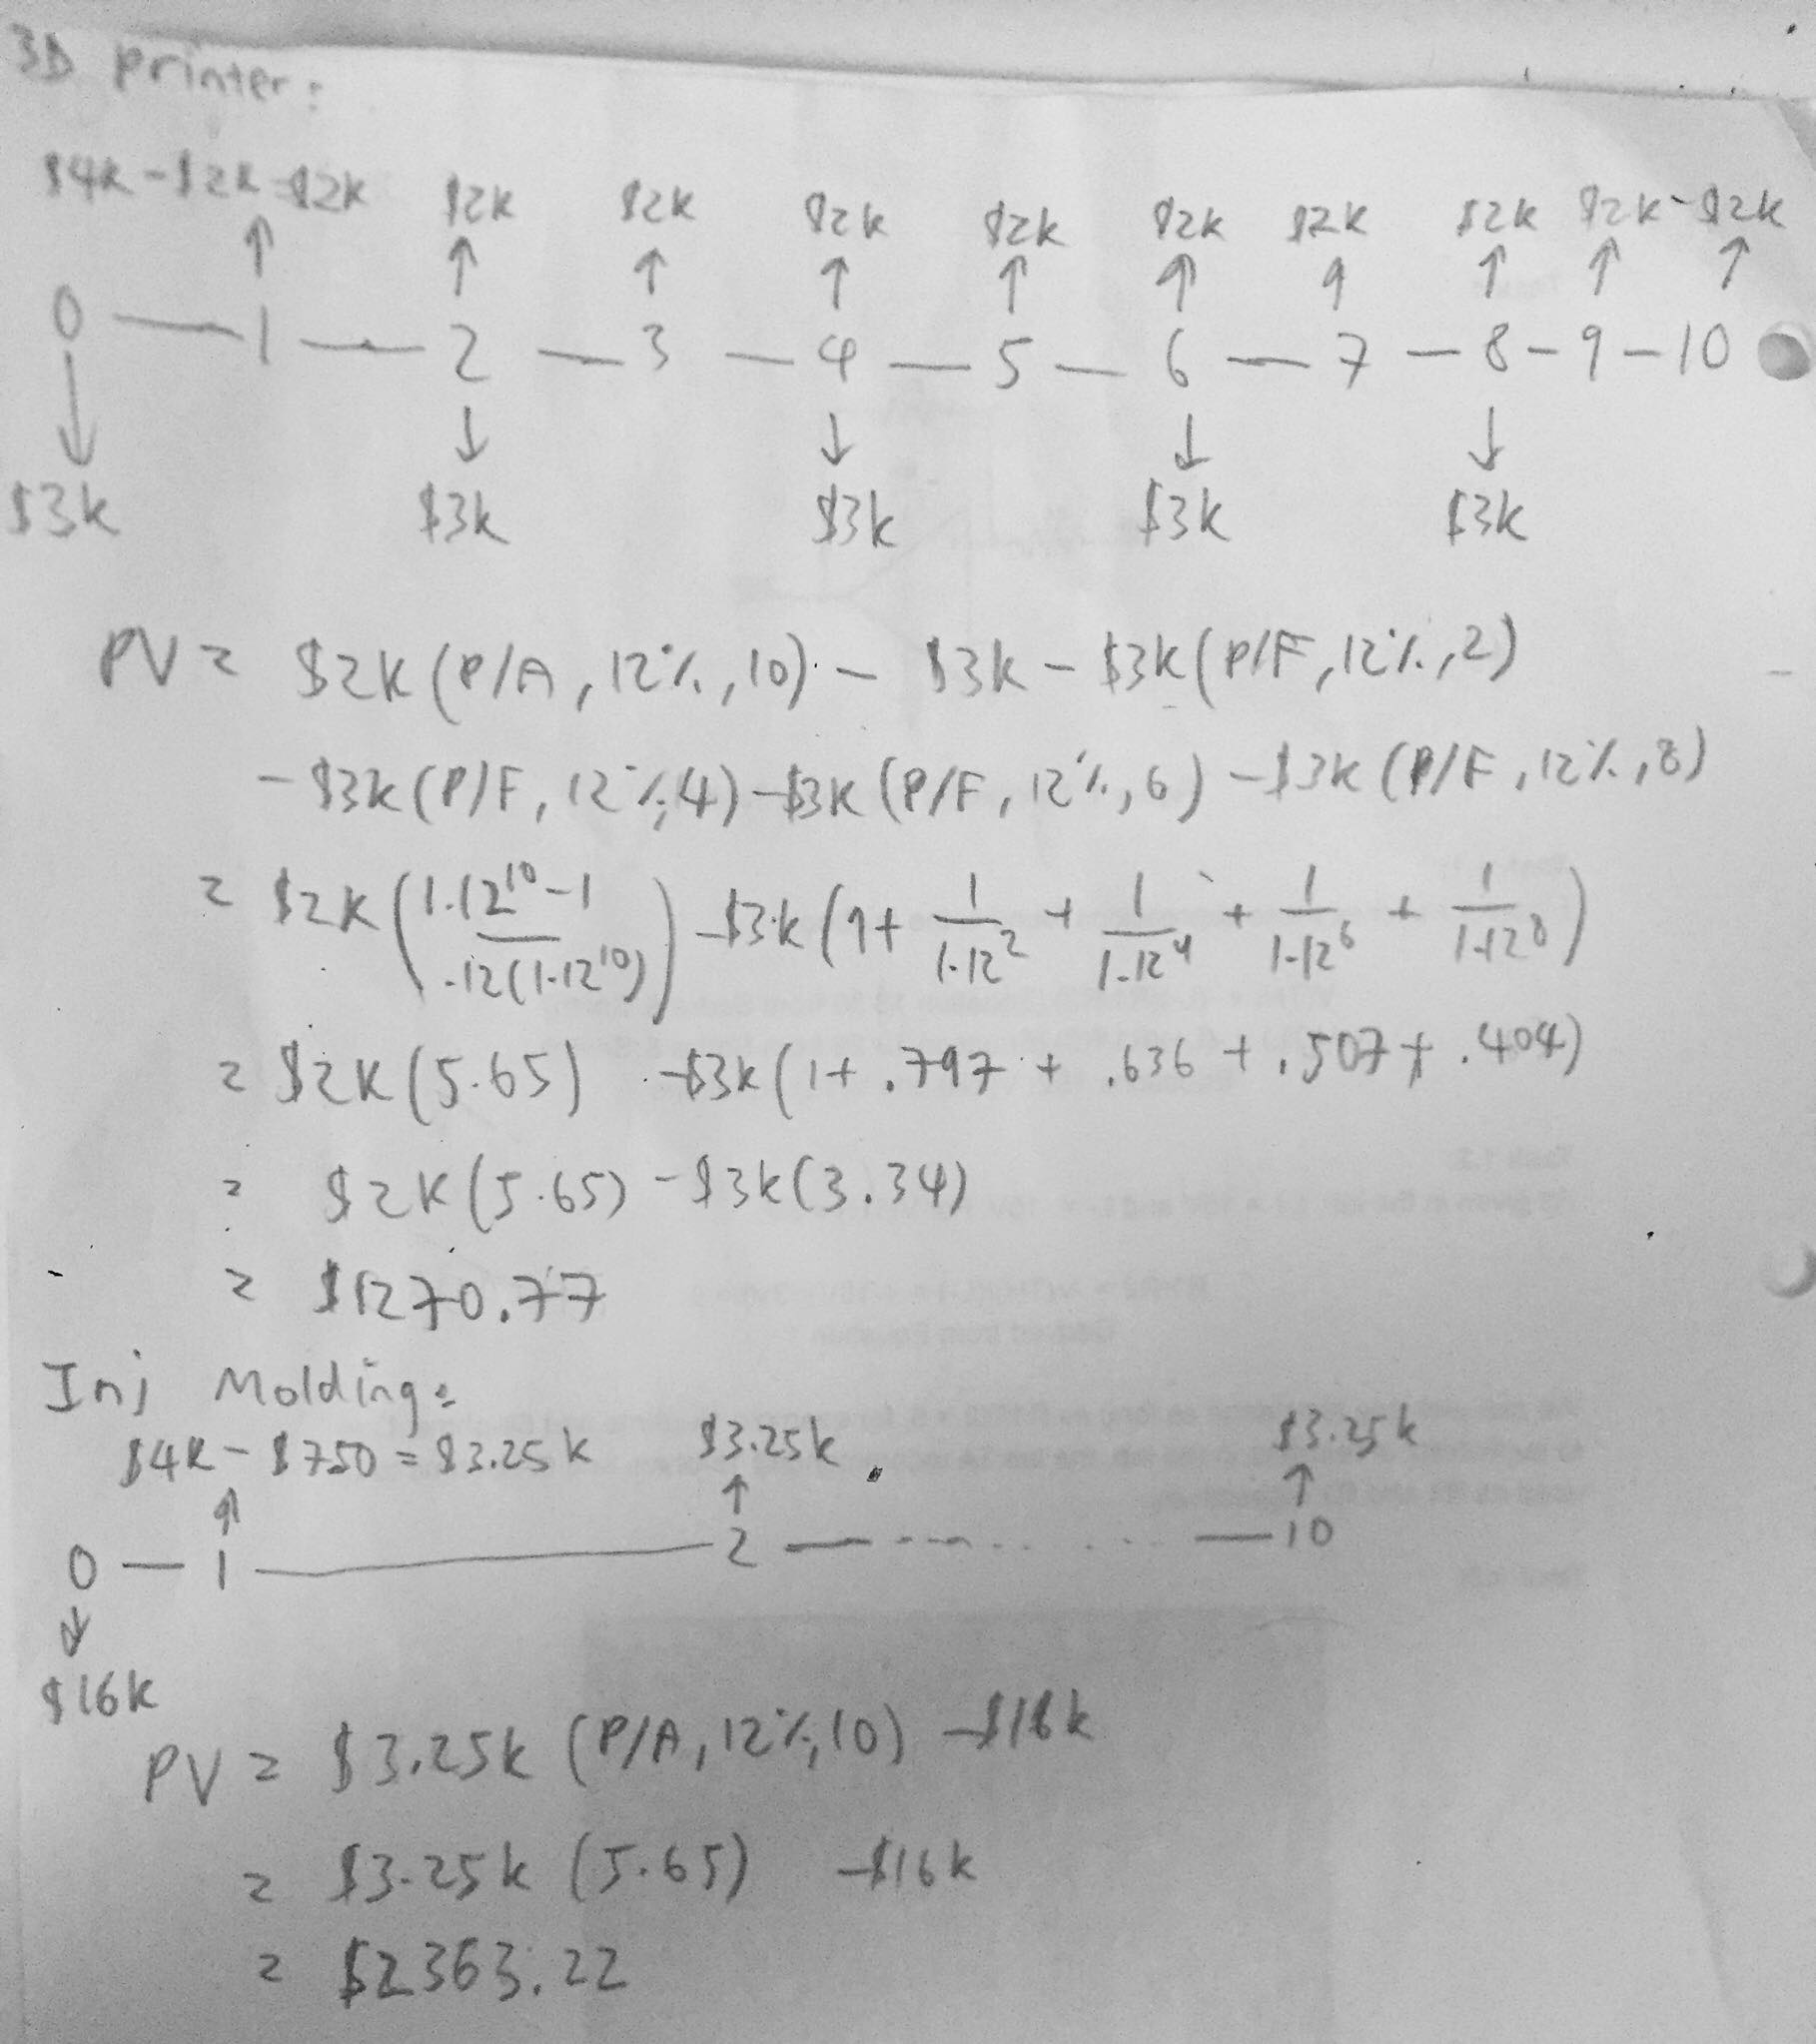 3D printer:
$4k-$2k=$2k $2k $2k $2k $2k $2k $2k $2k $2k $2k
0 — 1 — 2 — 3 — 4 — 5 — 6 — 7 — 8 - 9 - 10
$3k $3k $3k $3k $3k
PV = $2K (P/A, 12%, 10) - $3k - $3k (P/F, 12%, 2)
- $3k (P/F, 12%, 4) - $3k (P/F, 12%, 6) - $3k (P/F, 12%, 8)
= $2K (1.12^10 - 1 / .12(1.12^10)) - $3k (1 + 1/1.12^2 + 1/1.12^4 + 1/1.12^6 + 1/1.12^8)
= $2K (5.65) - $3k (1 + .797 + .636 + .507 + .404)
= $2K (5.65) - $3k (3.34)
= $1270.77
Inj Molding:
$4k - $750 = $3.25k $3.25k $3.25k
0 — 1 — 2 — - - - . . . — 10
$16k
PV = $3.25k (P/A, 12%, 10) - $16k
= $3.25k (5.65) - $16k
= $2363.22